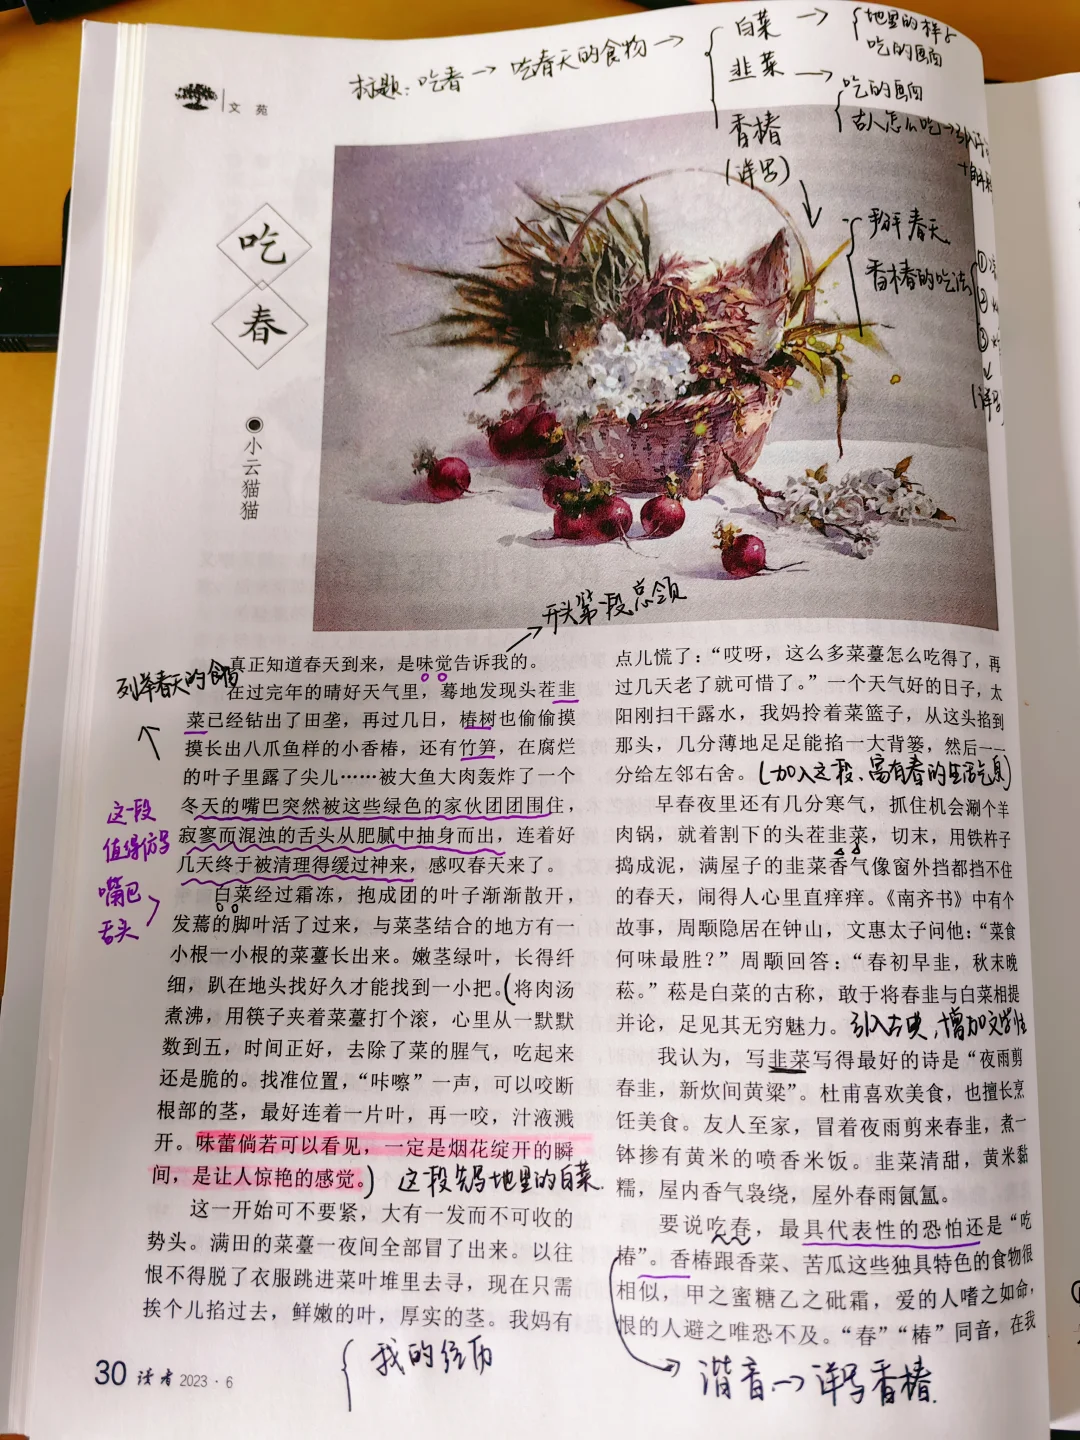 标题：吃春→吃春天的食物→
白菜→
地里的样子
吃的画面
韭菜→
吃的画面
古人怎么吃→引入诗
香椿
(详写)
掰春天
香椿的吃法
①
②
③
(详写
文苑
吃春
●小云猫猫
开头第一段总领
列举春天的食物
真正知道春天到来，是味觉告诉我的。
在过完年的晴好天气里，蓦地发现头茬韭
菜已经钻出了田垄，再过几日，椿树也偷偷摸
摸长出八爪鱼样的小香椿，还有竹笋，在腐烂
的叶子里露了尖儿……被大鱼大肉轰炸了一个
冬天的嘴巴突然被这些绿色的家伙团团围住，
寂寥而混浊的舌头从肥腻中抽身而出，连着好
几天终于被清理得缓过神来，感叹春天来了。
这一段
值得仿写
嘴巴
舌头
白菜经过霜冻，抱成团的叶子渐渐散开，
发蔫的脚叶活了过来，与菜茎结合的地方有一
小根一小根的菜薹长出来。嫩茎绿叶，长得纤
细，趴在地头找好久才能找到一小把。(将肉汤
煮沸，用筷子夹着菜薹打个滚，心里从一默默
数到五，时间正好，去除了菜的腥气，吃起来
还是脆的。找准位置，“咔嚓”一声，可以咬断
根部的茎，最好连着一片叶，再一咬，汁液溅
开。味蕾倘若可以看见，一定是烟花绽开的瞬
间，是让人惊艳的感觉。)
这段先写地里的白菜.
这一开始可不要紧，大有一发而不可收的
势头。满田的菜薹一夜间全部冒了出来。以往
恨不得脱了衣服跳进菜叶堆里去寻，现在只需
挨个儿掐过去，鲜嫩的叶，厚实的茎。我妈有
我的经历
点儿慌了：“哎呀，这么多菜薹怎么吃得了，再
过几天老了就可惜了。”一个天气好的日子，太
阳刚扫干露水，我妈拎着菜篮子，从这头掐到
那头，几分薄地足足能掐一大背篓，然后一一
分给左邻右舍。
(加入这段、富有春的生活气息)
早春夜里还有几分寒气，抓住机会涮个羊
肉锅，就着割下的头茬韭菜，切末，用铁杵子
捣成泥，满屋子的韭菜香气像窗外挡都挡不住
的春天，闹得人心里直痒痒。《南齐书》中有个
故事，周颙隐居在钟山，文惠太子问他：“菜食
何味最胜？”周颙回答：“春初早韭，秋末晚
菘。”菘是白菜的古称，敢于将春韭与白菜相提
并论，足见其无穷魅力。
引入古典，增加文学性
我认为，写韭菜写得最好的诗是“夜雨剪
春韭，新炊间黄粱”。杜甫喜欢美食，也擅长烹
饪美食。友人至家，冒着夜雨剪来春韭，煮一
钵掺有黄米的喷香米饭。韭菜清甜，黄米黏
糯，屋内香气袅绕，屋外春雨氤氲。
要说吃春，最具代表性的恐怕还是“吃
椿”。香椿跟香菜、苦瓜这些独具特色的食物很
相似，甲之蜜糖乙之砒霜，爱的人嗜之如命，
恨的人避之唯恐不及。“春”“椿”同音，在我
谐音→详写香椿.
30 读者 2023·6